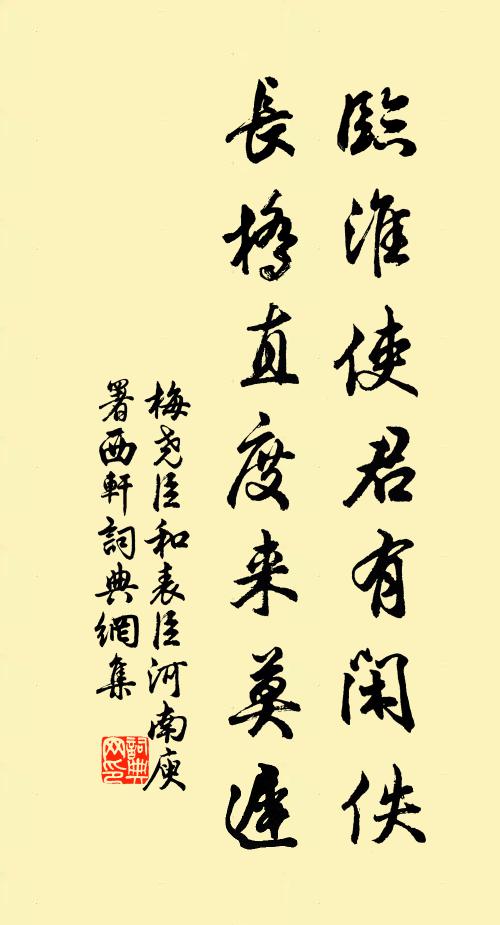 臨淮使君有閑佚
長橋直度来莫遲
梅尧臣和表臣河南庾
署西軒詞典網集
詞典网印